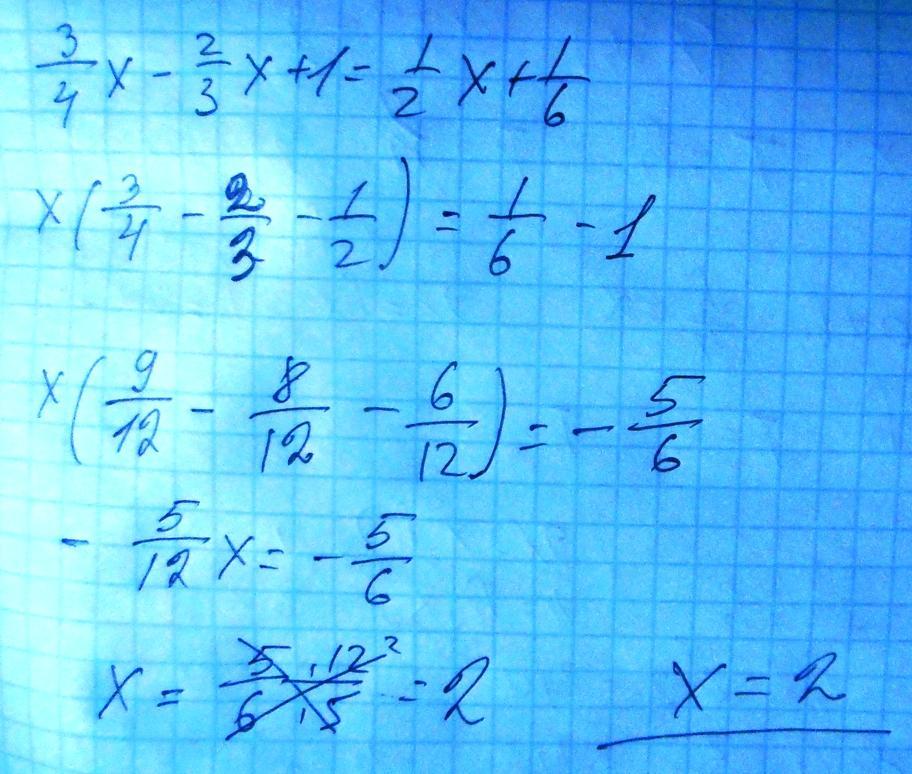 3/4 x - 2/3 x + 1 = 1/2 x + 1/6
x(3/4 - 2/3 - 1/2) = 1/6 - 1
x(9/12 - 8/12 - 6/12) = - 5/6
- 5/12 x = - 5/6
x = 5·12²/6·5 = 2 x = 2